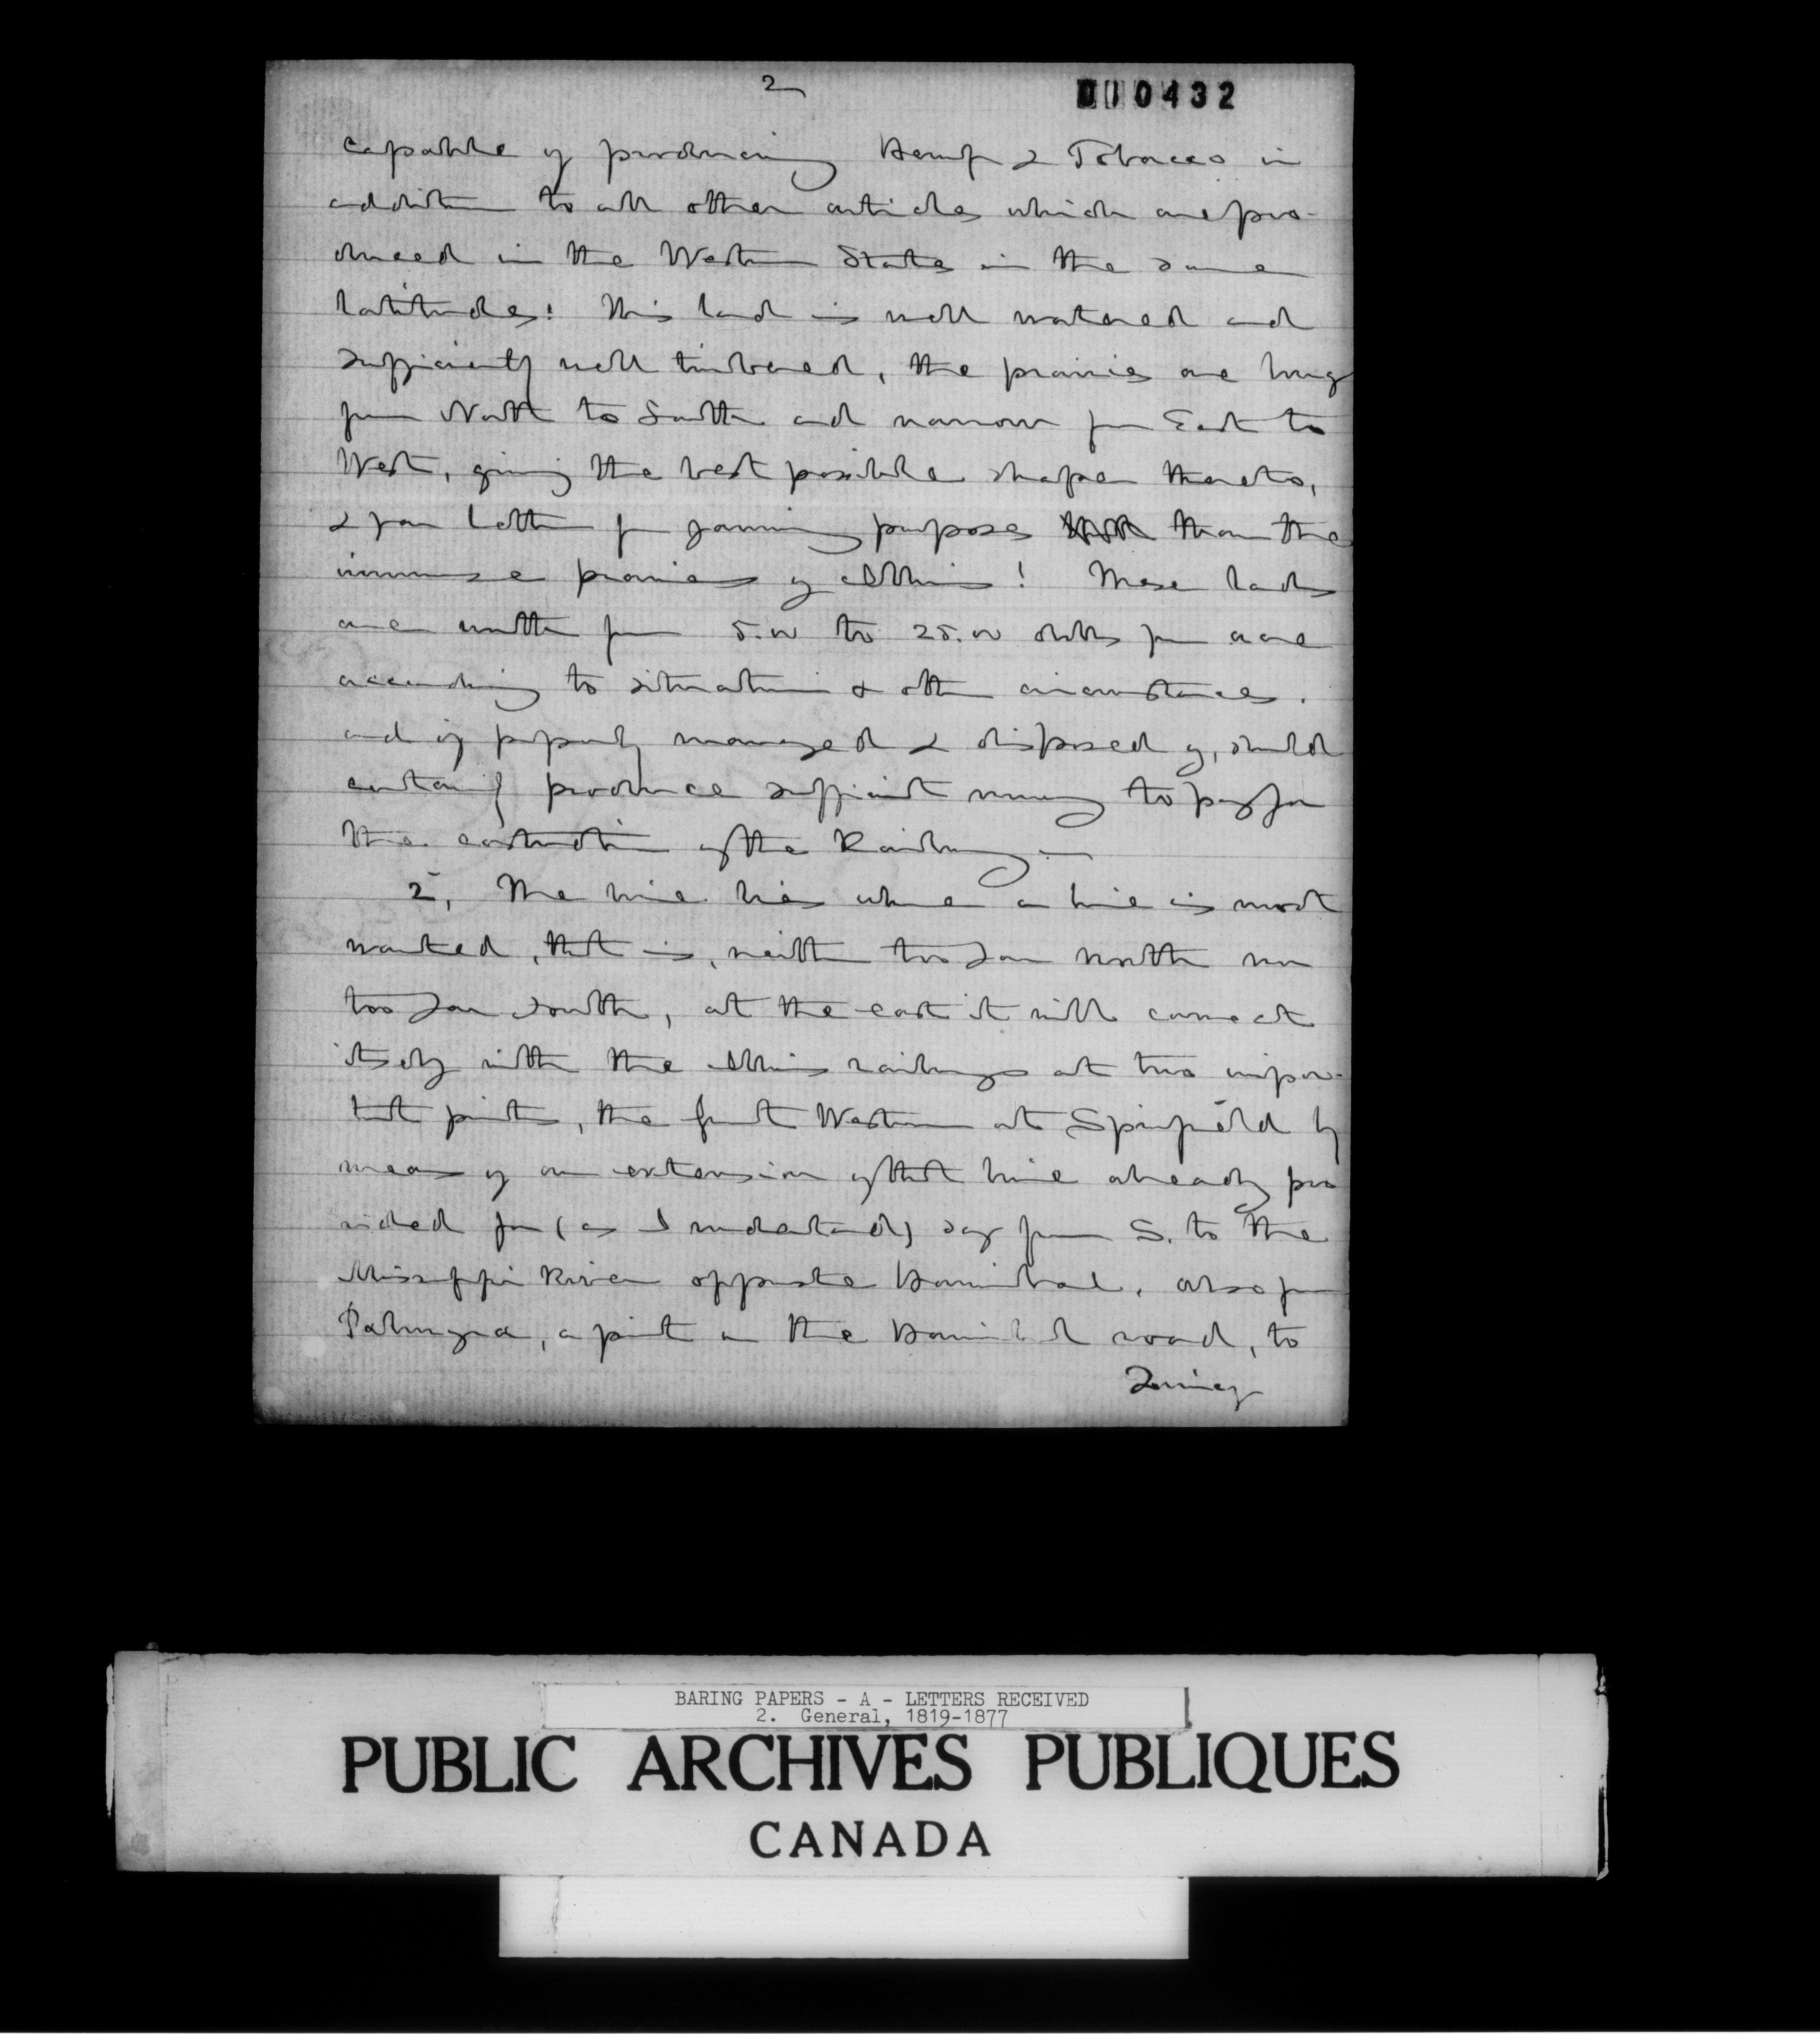 2
010432
capable of producing Hemp & Tobacco in
addition to all other articles which are pro-
duced in the Western States in the same
latitudes! This land is well watered and
sufficiently well timbered, the prairies are long
from North to South and narrow from East to
West, giving the best possible shape thereto,
& far better for farming purposes than the
immense prairies of Illinois! These lands
are worth from 5.00 to 25.00 dolls per acre
according to situation & other circumstances.
and if properly managed & disposed of, should
certainly produce sufficient money to pay for
the construction of the Railway —
2, The line lies where a line is most
wanted, that is, neither too far north nor
too far south, at the east it will connect
itself with the Illinois railways at two impor-
tant points, the Great Western at Springfield by
means of an extension of that line already pro
vided for (as I understand) say from S. to the
Mississippi River opposite Hannibal, also from
Palmyra, a point on the Hannibal road, to
Quincy
BARING PAPERS - A - LETTERS RECEIVED
2. General, 1819-1877
PUBLIC ARCHIVES PUBLIQUES
CANADA